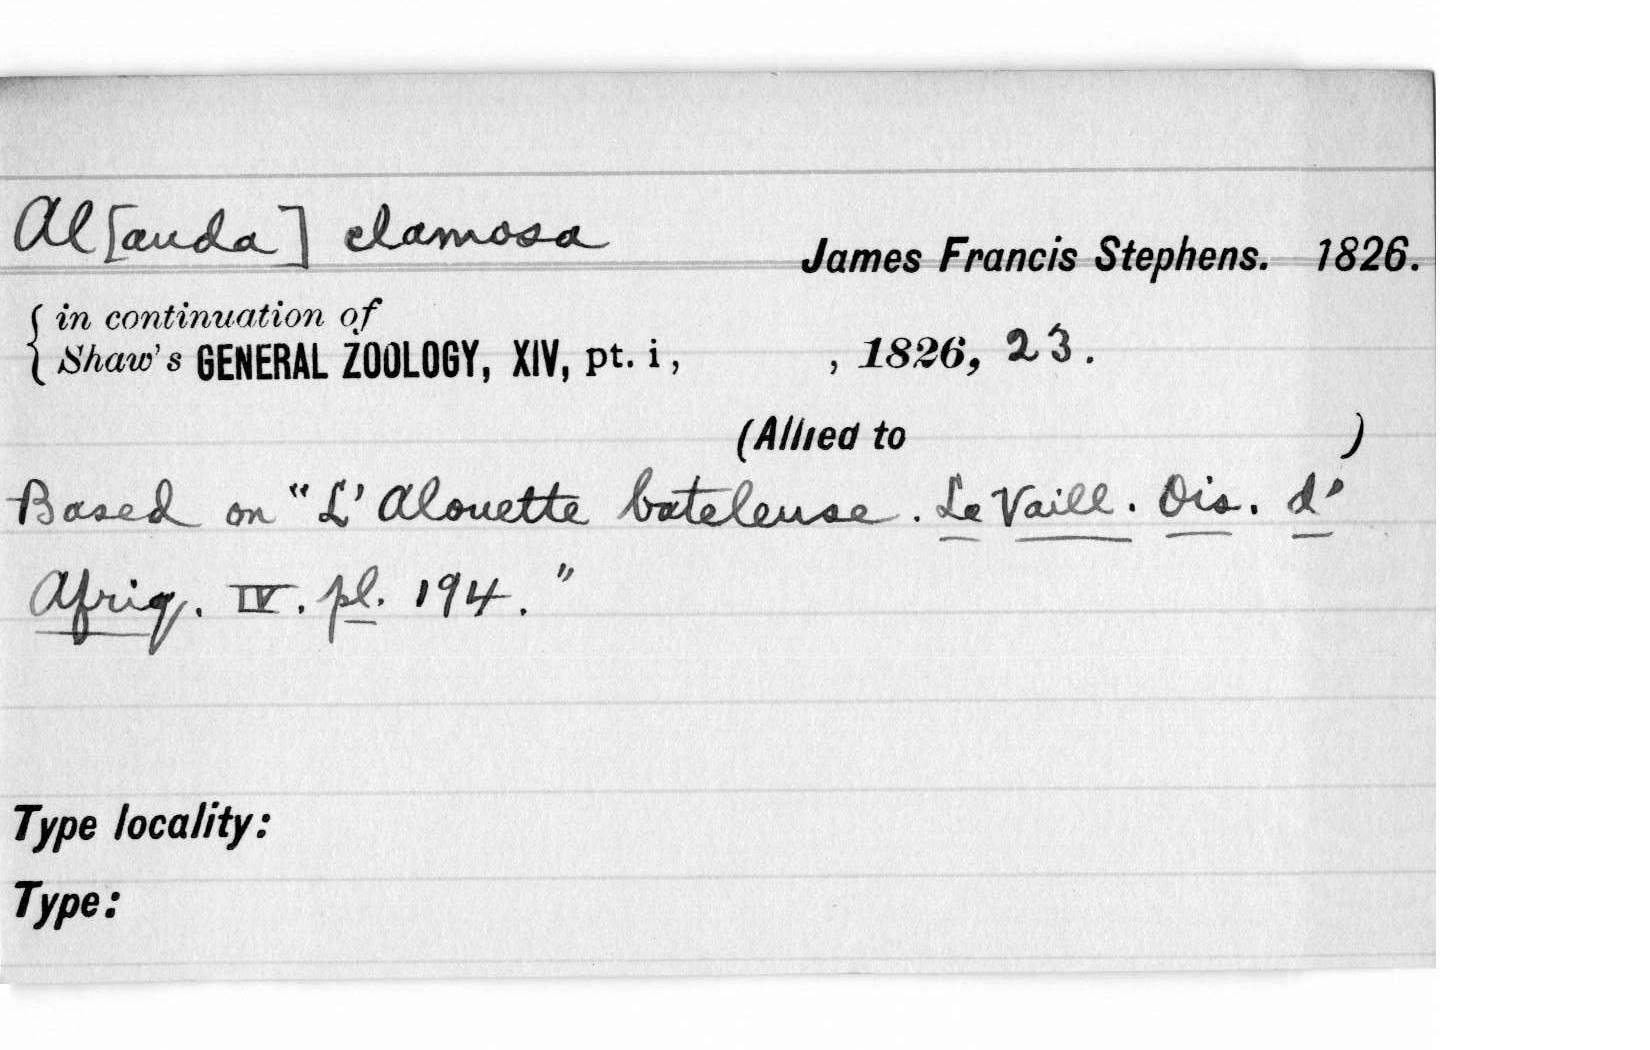 Al[auda] clamosa
James Francis Stephens. 1826.
{ in continuation of
Shaw's GENERAL ZOOLOGY, XIV, pt. i, , 1826, 23.
(Allied to )
Based on "L'Alouette bateleuse. Le Vaill. Ois. d'
Afriq. IV. pl. 194."
Type locality:
Type: